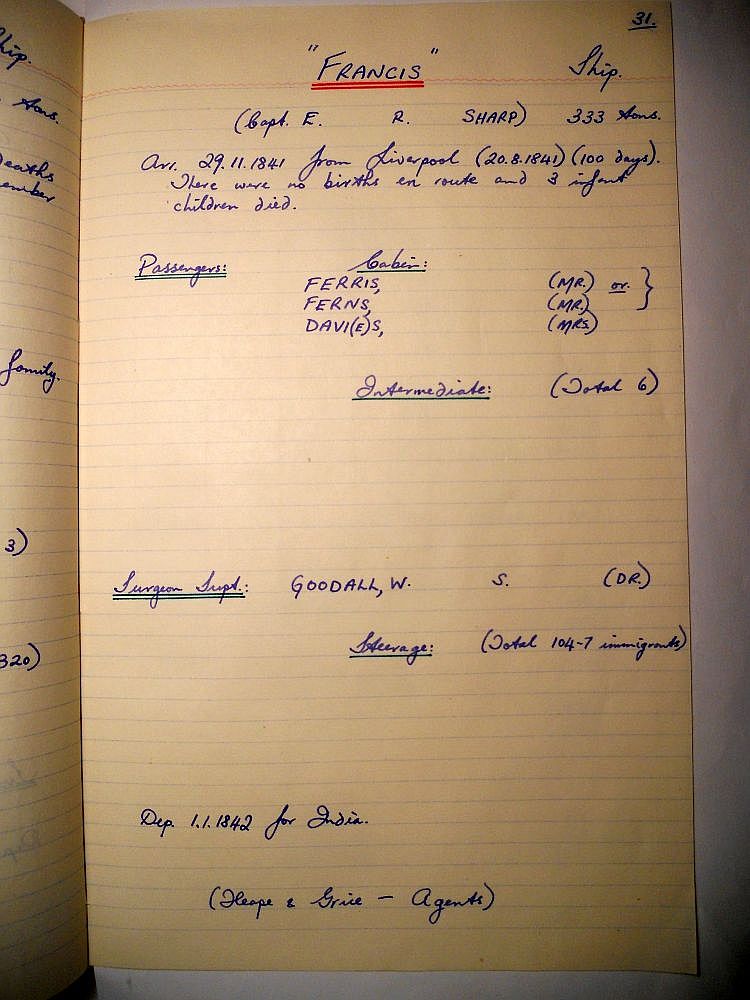 31.
"FRANCIS" Ship.
(Capt. E. R. SHARP) 333 tons.
Arr. 29.11.1841 from Liverpool (20.8.1841) (100 days).
There were no births en route and 3 infant
children died.
Passengers: Cabin:
FERRIS, (MR.) or. }
FERNS, (MR.)
DAVI(E)S, (MRS.)
Intermediate: (Total 6)
Surgeon Supt.: GOODALL, W. S. (DR.)
Steerage: (Total 104-7 immigrants)
Dep. 1.1.1842 for India.
(Heape & Grice - Agents)
hip.
tons.
eaths
ember
family.
3)
320)